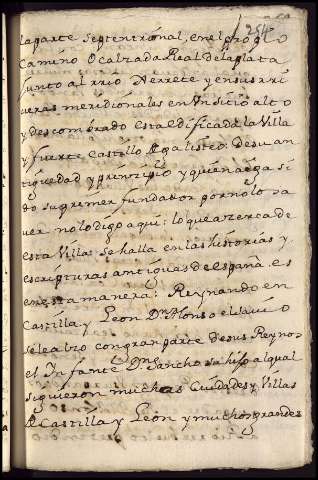 254
laparte Septentrional, en el pro
Camino O calzada Real de la plata
Junto al rrio Xerrete y en sus rri
veras meridionales en Un Sitio alto
y descombrado esta edificada la Villa
y fuerte Castillo de galisteo: De su an
tiguedad y principio y quien aya si
do su primer fundador por no lo sa
ver no lo digo aqui: lo que a zerca de
esta Villa: Se halla en las historias y
escripturas antiguas de españa. es
en esta manera: Reynando en
Castilla y Leon Dn Alonso el savio
se le alzo con gran parte de sus Reynos
el Infante Dn Sancho su hijo al qual
siguieron muchas Ciudades y Villas
de Castilla y Leon y muchos grandes